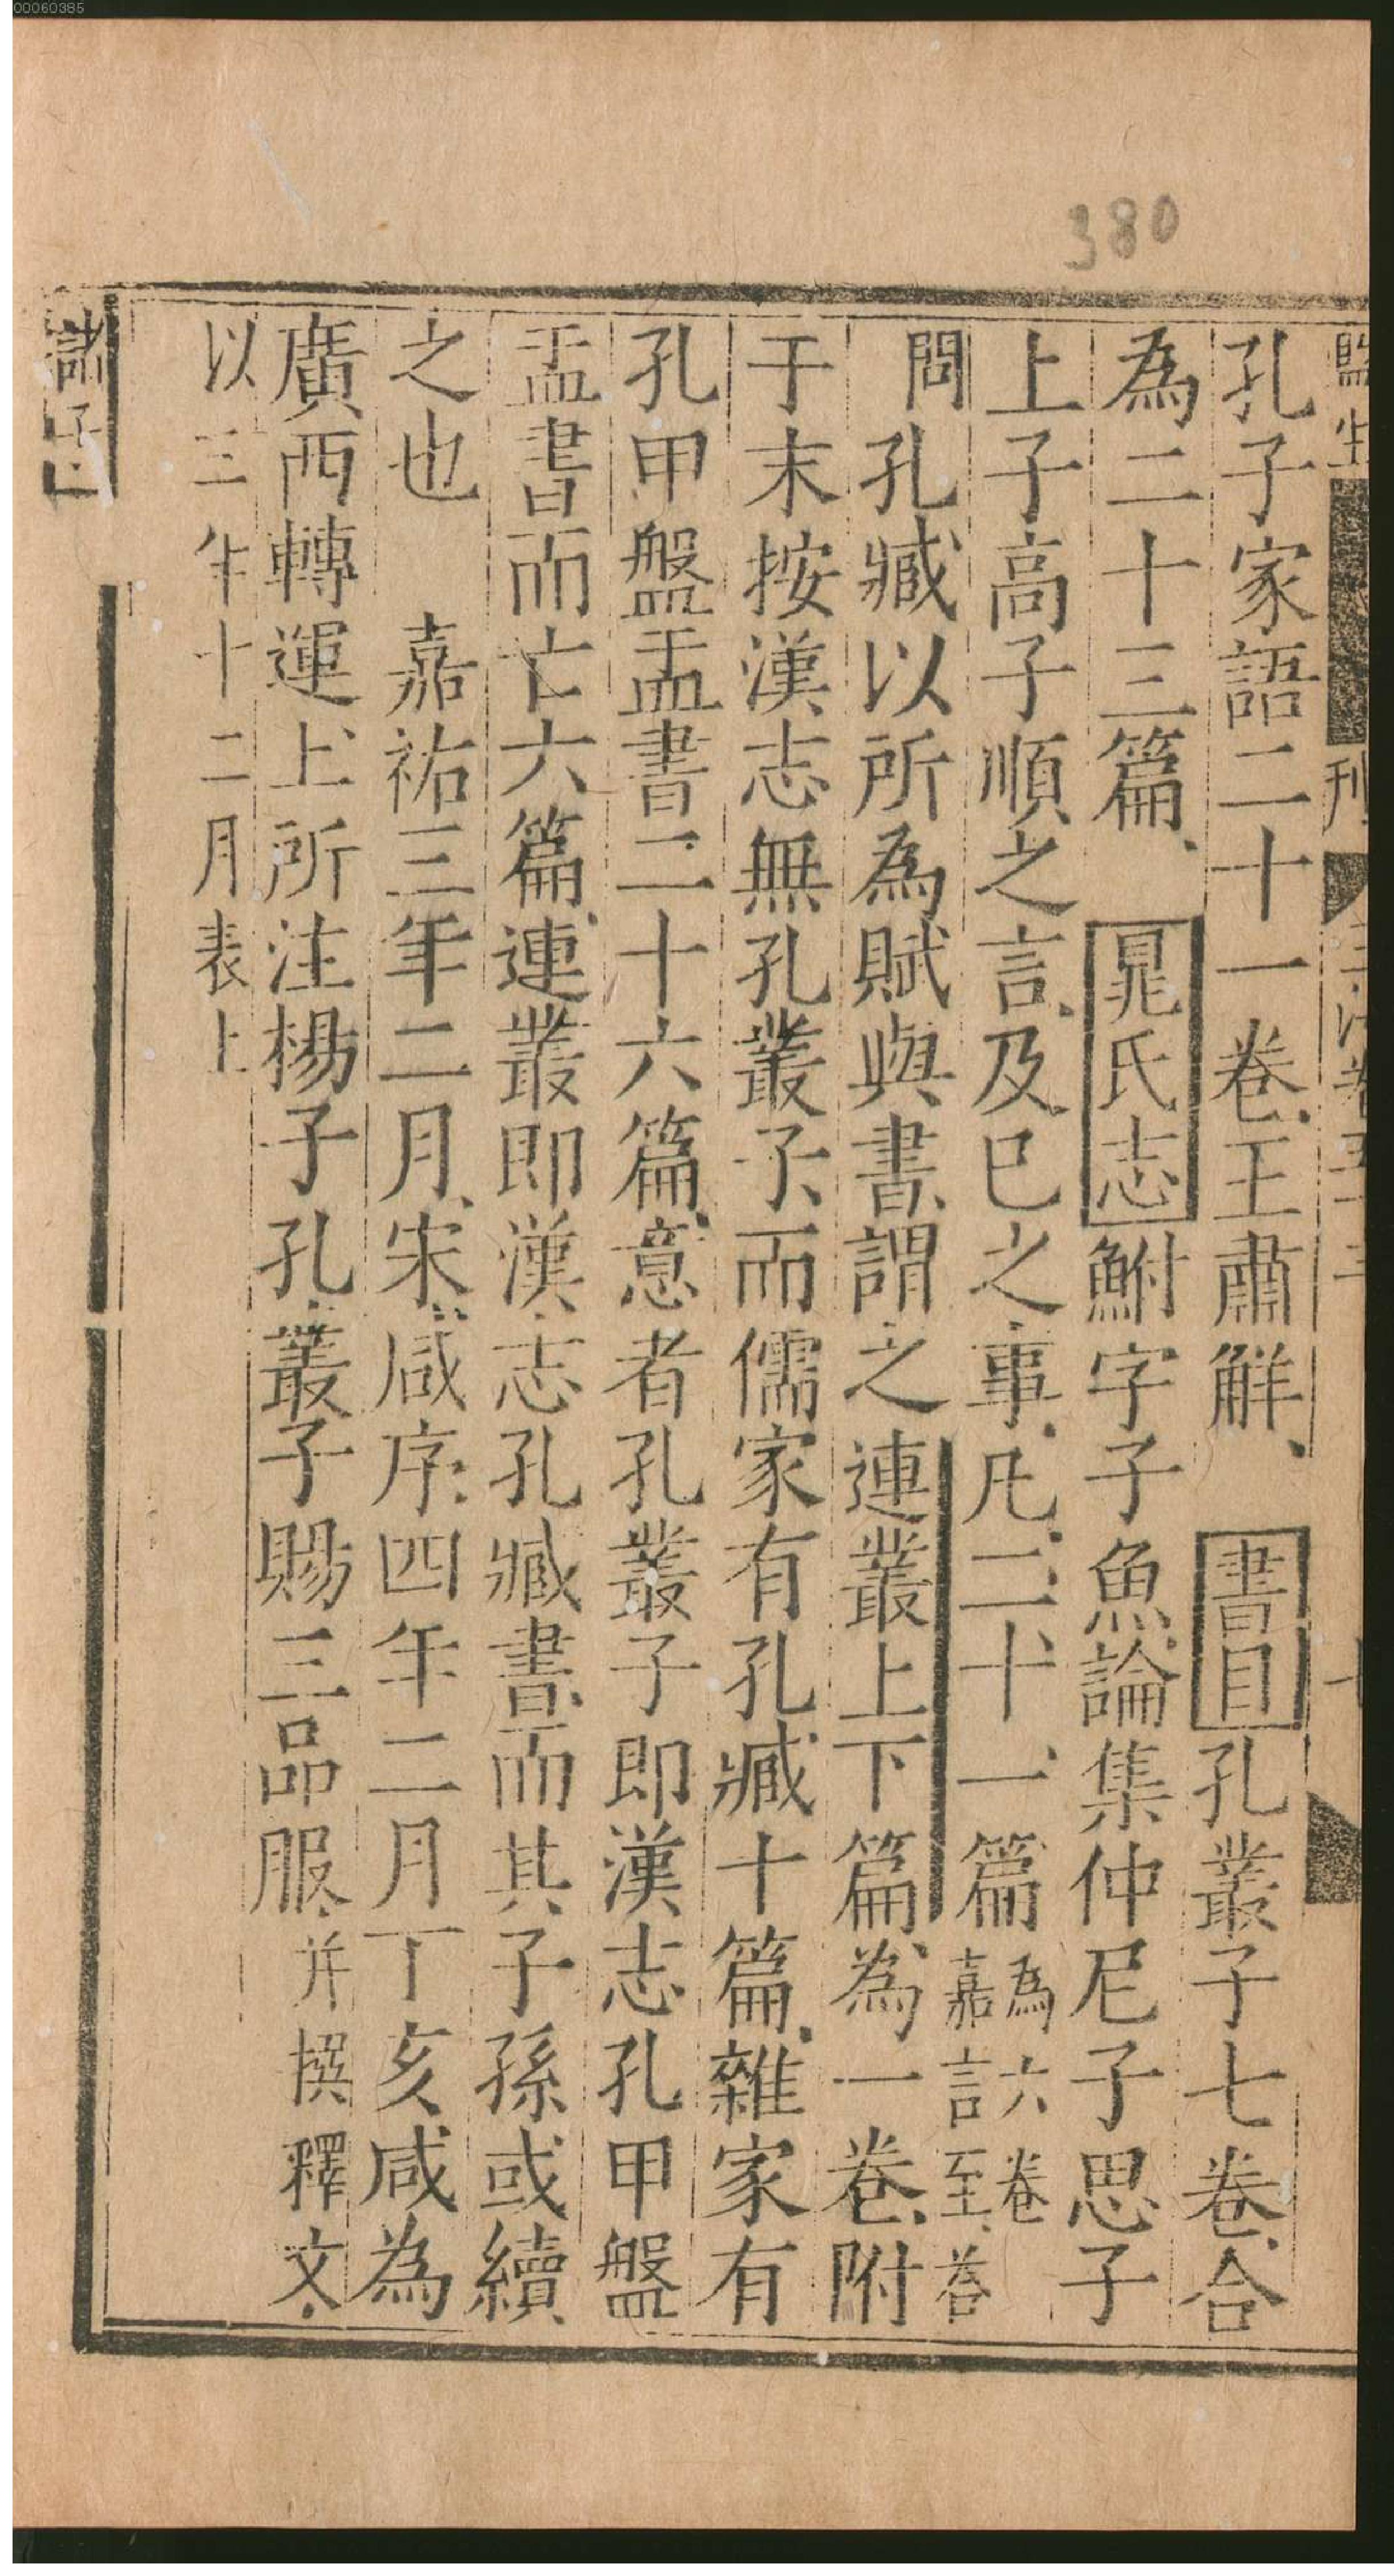 00060385
380
監生
刊
玉海卷五十三
孔子家語二十一卷王肅解 書目孔叢子七卷合
為二十三篇 鼂氏志鮒字子魚論集仲尼子思子
上子高子順之言及已之事凡二十一篇為六卷嘉言至荅
問孔臧以所為賦與書謂之連叢上下篇為一卷附
于末按漢志無孔叢子而儒家有孔臧十篇雜家有
孔甲盤盂書二十六篇意者孔叢子即漢志孔甲盤
盂書而亡六篇連叢即漢志孔臧書而其子孫或續
之也 嘉祐三年二月宋咸序四年二月丁亥咸為
廣西轉運上所注楊子孔叢子賜三品服并撰釋文
以三年十二月表上
諸子